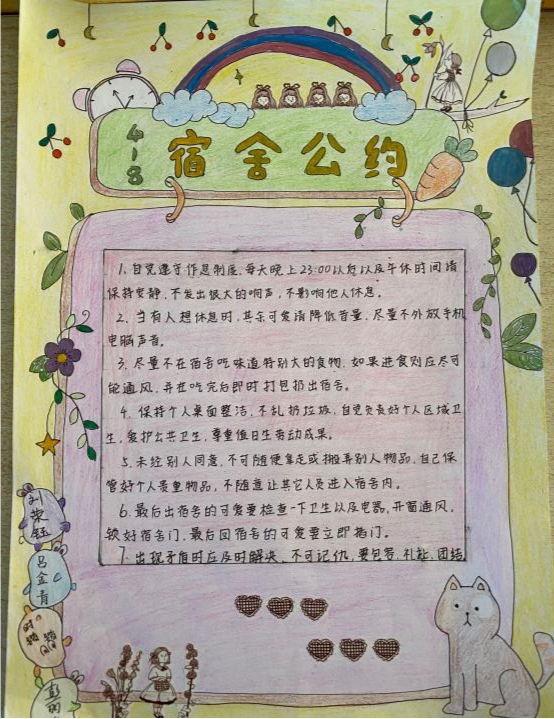 4-8
宿舍公约
1. 自觉遵守作息制度,每天晚上23:00以后以及午休时间请
保持安静,不发出很大的响声,不影响他人休息。
2. 当有人想休息时,其余可爱请降低音量,尽量不外放手机
电脑声音。
3. 尽量不在宿舍吃味道特别大的食物,如果进食则应尽可
能通风,并在吃完后即时打包扔出宿舍。
4. 保持个人桌面整洁,不乱扔垃圾,自觉负责好个人区域卫
生,爱护公共卫生,尊重值日生劳动成果。
5. 未经别人同意,不可随便拿走或搬弄别人物品,自己保
管好个人贵重物品,不随意让其它人员进入宿舍内。
6. 最后出宿舍的可爱要检查一下卫生以及电器,开窗通风,
锁好宿舍门,最后回宿舍的可爱要立即插门。
7. 出现矛盾时应及时解决、不可记仇,要包容,礼让,团结
刘荣钰
吕金青